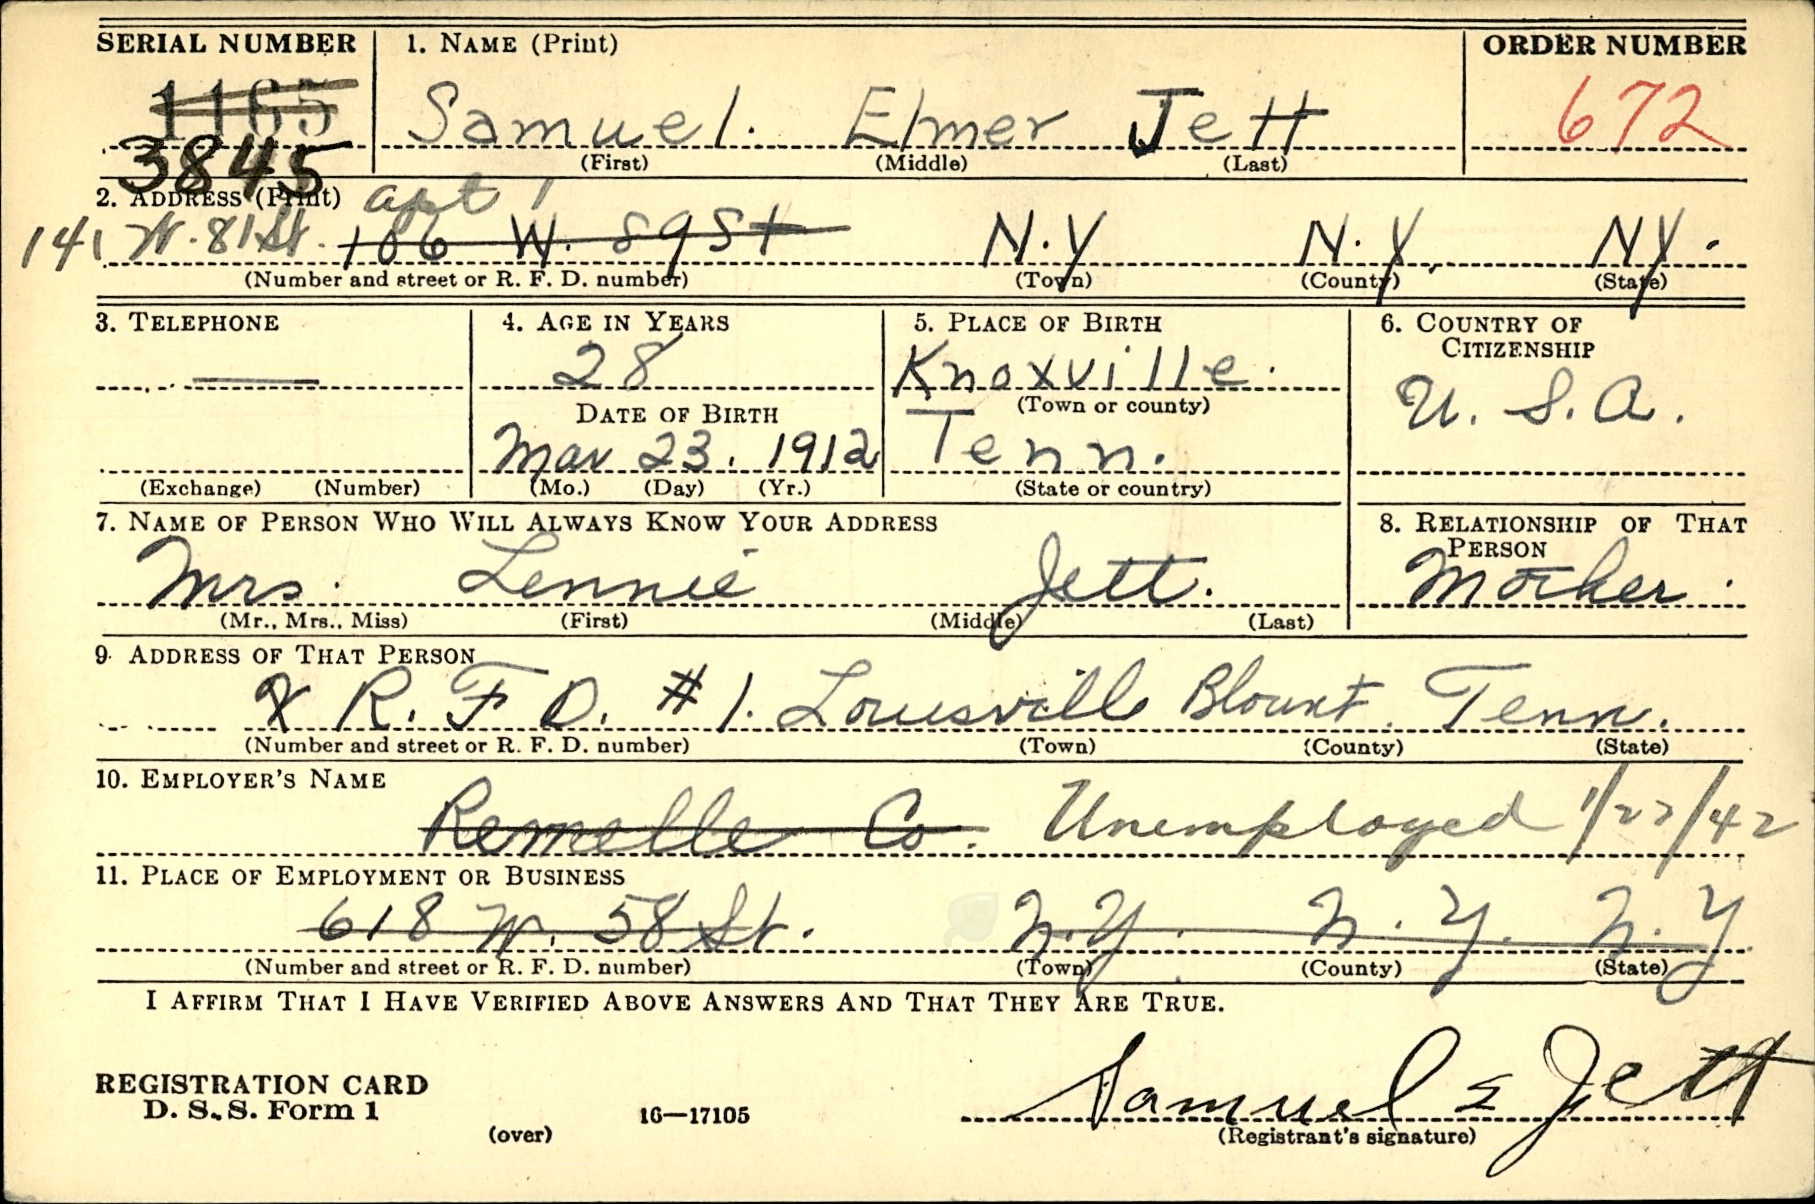 SERIAL NUMBER
1165
3845
1. NAME (Print)
Samuel. Elmer Jett
(First) (Middle) (Last)
ORDER NUMBER
672
2. ADDRESS (Print) apt 1
141 W. 81 St. 106 W. 89 St N.Y N.Y. NY.
(Number and street or R. F. D. number) (Town) (County) (State)
3. TELEPHONE
(Exchange) (Number)
4. AGE IN YEARS
28
DATE OF BIRTH
Mar 23. 1912
(Mo.) (Day) (Yr.)
5. PLACE OF BIRTH
Knoxville.
(Town or county)
Tenn.
(State or country)
6. COUNTRY OF
CITIZENSHIP
U. S. A.
7. NAME OF PERSON WHO WILL ALWAYS KNOW YOUR ADDRESS
Mrs. Lennie Jett.
(Mr., Mrs., Miss) (First) (Middle) (Last)
8. RELATIONSHIP OF THAT
PERSON
Mother.
9. ADDRESS OF THAT PERSON
R. F. D. #1. Louisville Blount. Tenn.
(Number and street or R. F. D. number) (Town) (County) (State)
10. EMPLOYER'S NAME
Remelle Co. Unemployed 1/27/42
11. PLACE OF EMPLOYMENT OR BUSINESS
618 W. 58 St. N.Y. N.Y. N.Y.
(Number and street or R. F. D. number) (Town) (County) (State)
I AFFIRM THAT I HAVE VERIFIED ABOVE ANSWERS AND THAT THEY ARE TRUE.
REGISTRATION CARD
D. S. S. Form 1
(over)
16—17105
Samuel E Jett
(Registrant's signature)